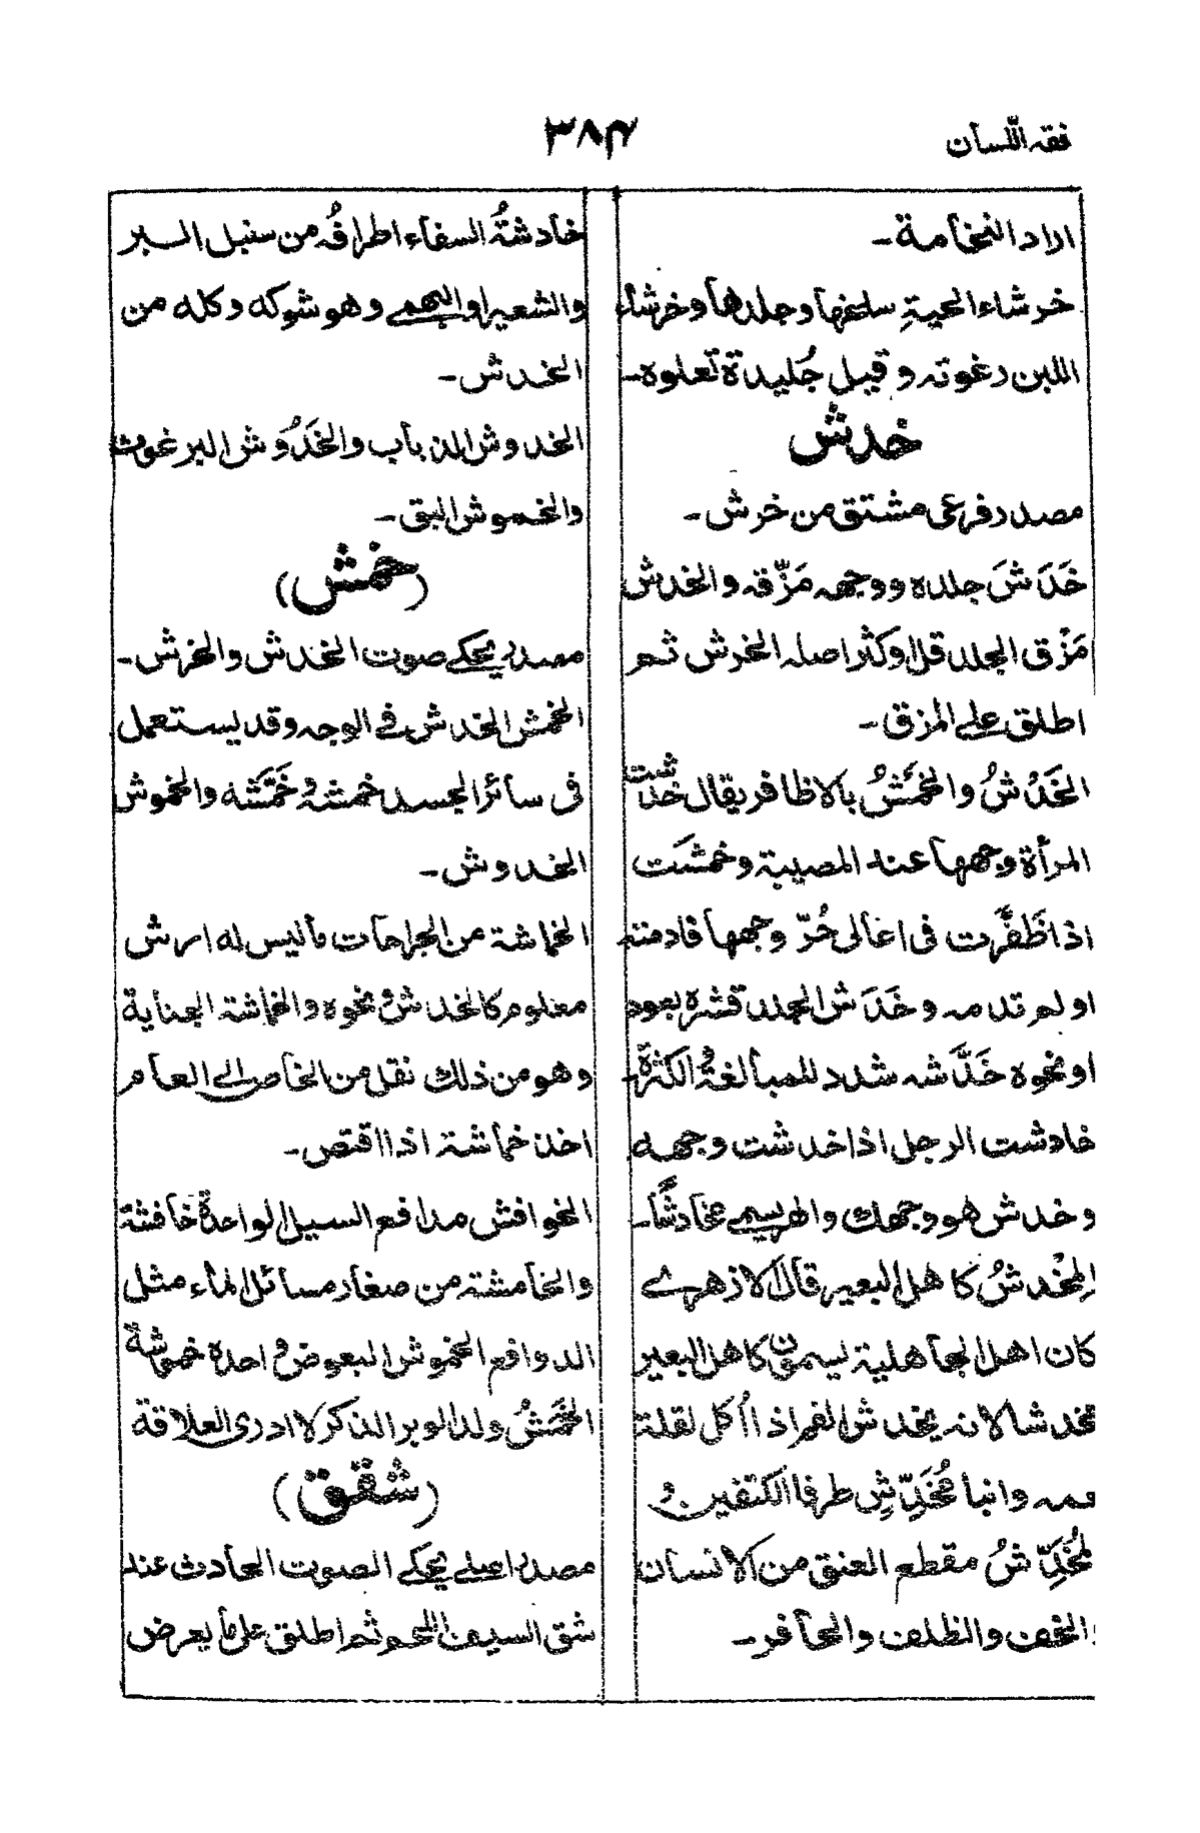 فقہ اللّسان
۳۸۴
اراد النخامة۔
خرشاء الحیةِ سلخھا وجلدھا وخرشاء
اللبن رغوتہ وقیل جُلیدة تعلوہ۔
خدش
مصدر فرعی مشتق من خرش۔
خَدَشَ جلدہ ووجھہ مَزَّقہ والخدش
مَزْق الجلد قل اوکثر اصلہ الخرش ثم
اطلق علے المزق۔
الخَدْشُ والخَمْشُ بالاظافر یقال خدَشت
المرأة وجھھا عند المصیبة وخمشَت
اذا ظَفَّرت فی اعالی حُرّ وجھھا فادمتہ
او لم تدمہ وخَدَش الجلد قشرہ بعود
او نحوہ خَدَّشہ شدد للمبالغة و الکثرة۔
خادشت الرجل اذا خدشت وجھہ
وخدش ھو وجھك والھر یسمے مخادشًا۔
المِخْدشُ کاھل البعیر قال الازھرے
کان اھل الجاھلیة یسمون کاھل البعیر
مخدشا لانہ یخدش الفم اذا اُکل لقلة
لحمہ وابنا مُخَدِّشٍ طرفا الکتفین و
المُخَدِّشُ مقطع العنق من الانسان
والخف والظلف والحافر۔
خادشةُ السفاء اطرافُہ من سنبل البر
والشعیر او البھمے وھو شوکہ وکلہ من
الخدش۔
الخدوش الذباب والخَدُوش البرغوث
والخموش البق۔
(خمش)
مصدر یحکے صوت الخدش والخرش۔
الخمش الخدش فے الوجہ وقد یستعمل
فی سائر الجسد خمشہ و خَمَّشہ والخموش
الخدوش۔
الخماشة من الجراحات مالیس لہ ارش
معلوم کالخدش و نحوہ والخماشة الجنایة
وھو من ذلك نقل من الخاص الے العام
اخذ خماشتہ اذا اقتص۔
الخوافش مدافع السیل الواحدة خافشة
والخامشة من صغار مسائل الماء مثل
الدوافع الخموش البعوض واحدہ خموشة
الخَمَشُ ولد الوبر الذکر لا ادری العلاقة
(شقق)
مصدر اصلے یحکے الصوت الحادث عند
شق السیف اللحم ثم اطلق علی ما یعرض